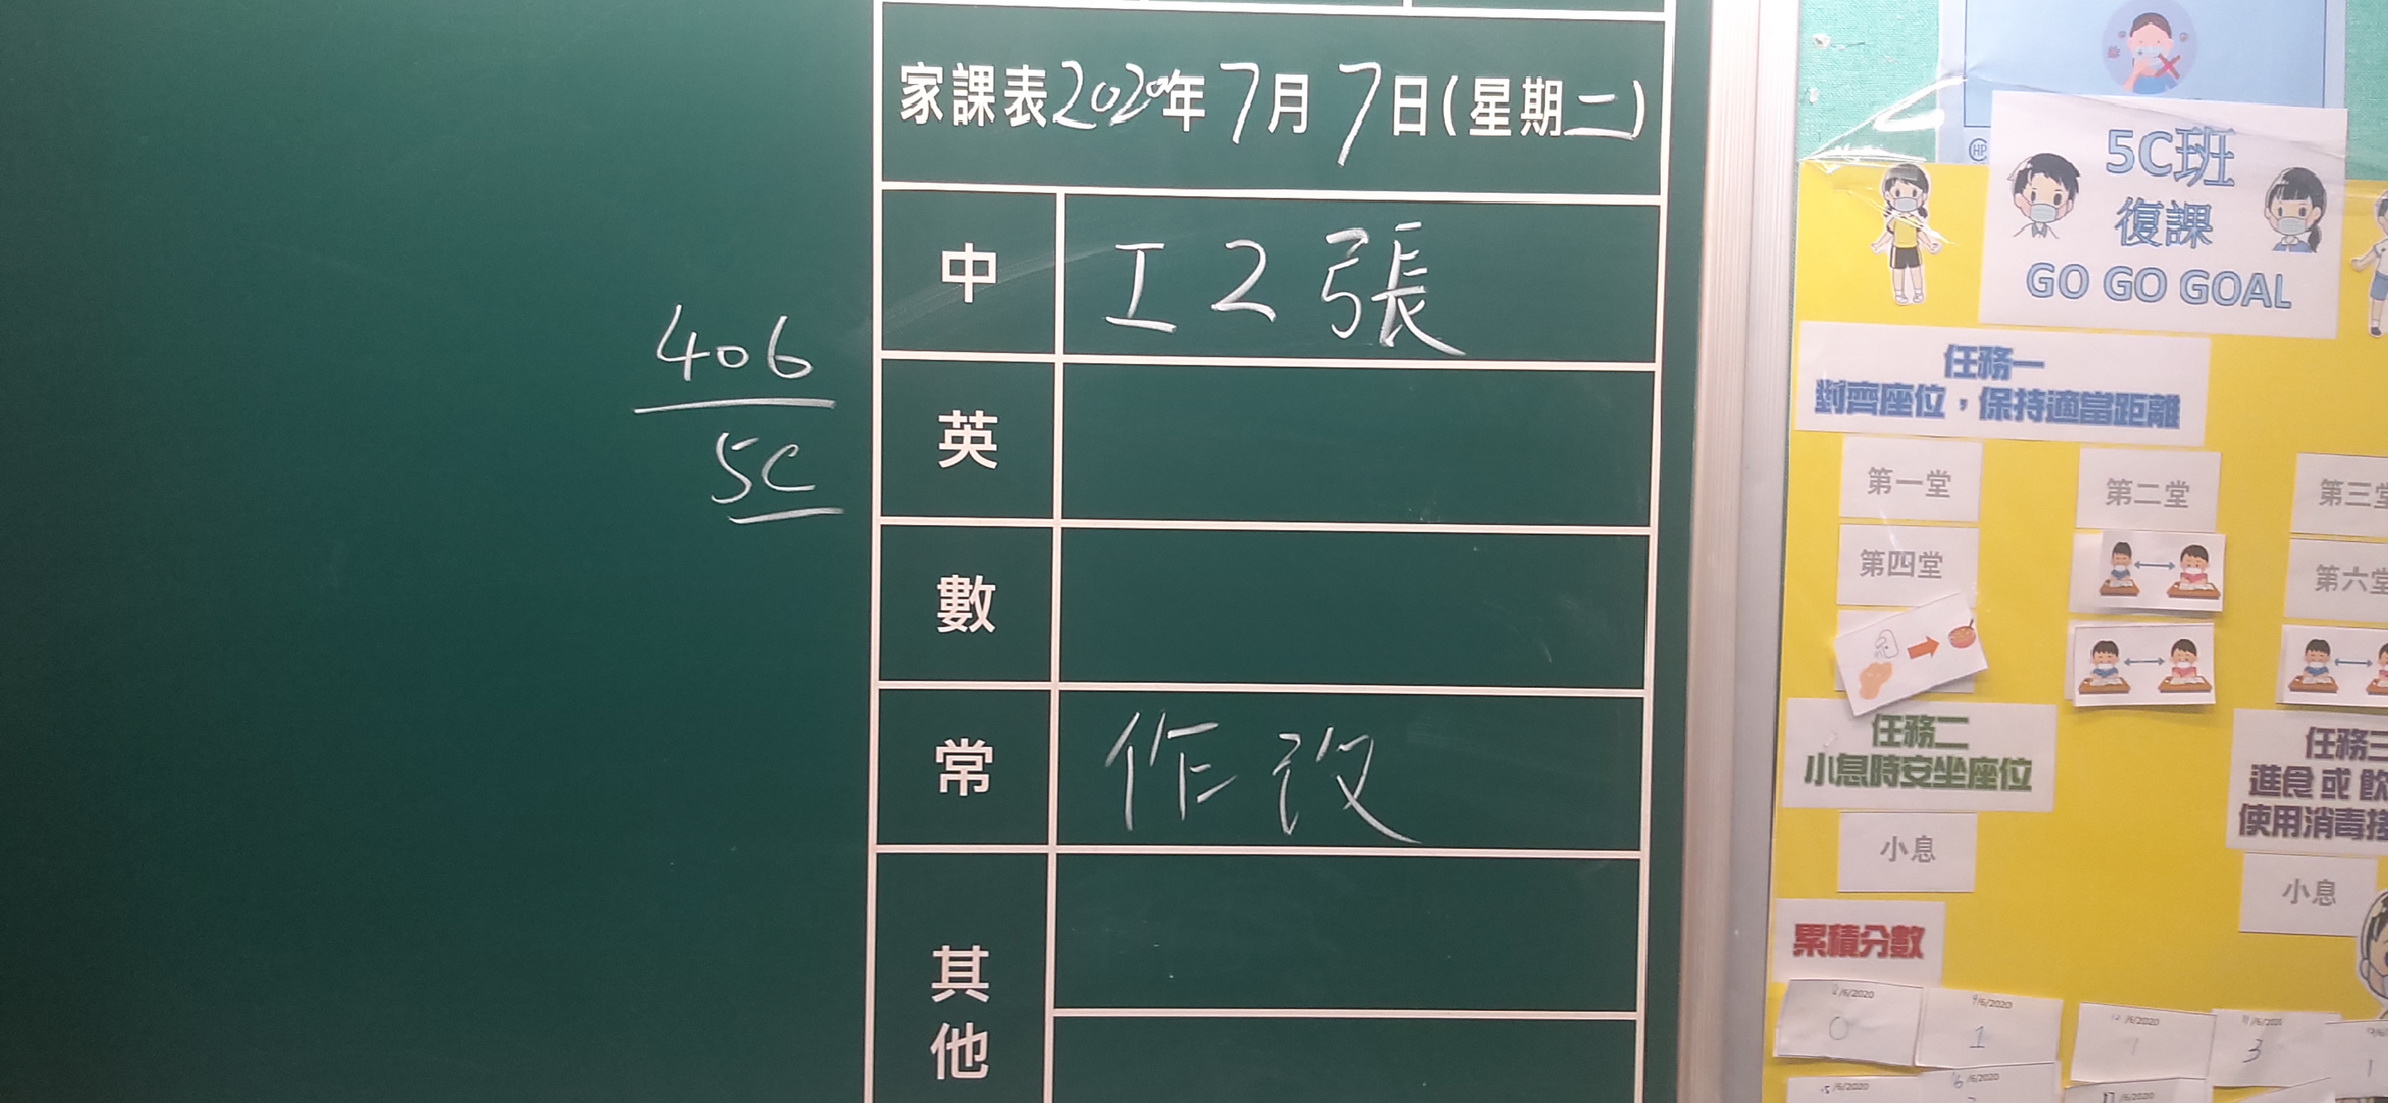 家課表2020年7月7日(星期二)
中 工2張
英
數
常 作改
其他
406
5C
5C班
復課
GO GO GOAL
任務一
對齊座位，保持適當距離
第一堂 第二堂 第三堂
第四堂 第六堂
任務二
小息時安坐座位
小息
任務三
進食或飲
使用消毒搓
小息
累積分數
9/6/2020
0 1 1 3 1